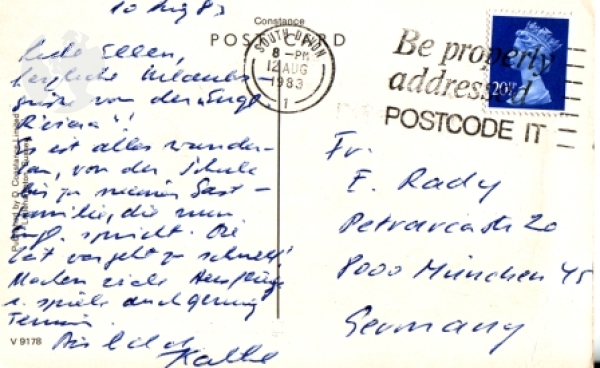 10 Aug 83
Liebe Ellen,
herzliche Urlaubs-
grüße von der "engl.
Riviera"!
Es ist alles wunder-
bar, von der Schule
bis zu meiner Gast-
familie, die nur
engl. spricht. Die
Zeit vergeht zu schnell!
Machen viele Ausflüge
u. spiele auch genug
Tennis.
Bis bald
Constance
POST CARD
SOUTH DEVON
8 - PM
12 AUG
1983
1
Be properly
addressed
POSTCODE IT
20P
Fr.
E. Rady
Petrarcastr 20
8000 München 45
Germany
Published by D. Constance Limited
V 9178